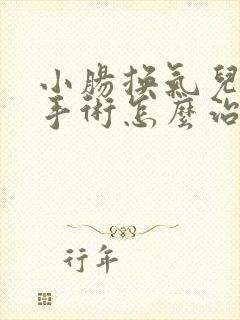 小腸換氣兒
手術怎麼治
行年